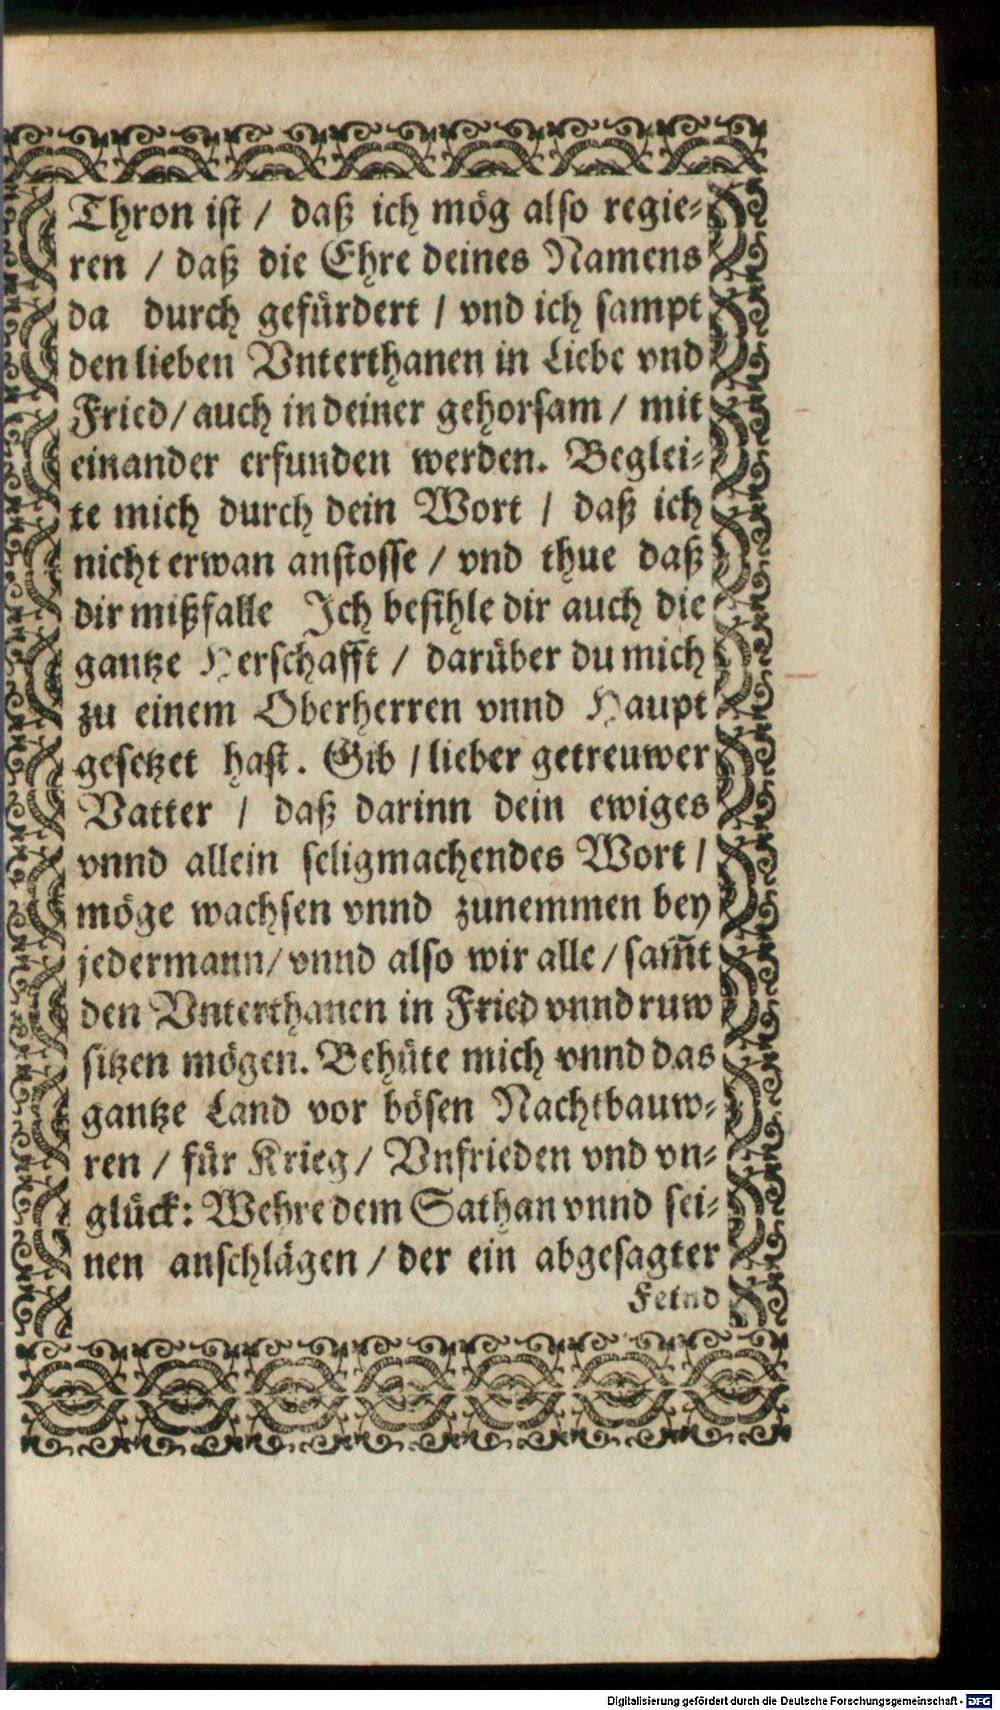 Thron ist / daß ich mög also regie⸗
ren / daß die Ehre deines Namens
da durch gefürdert / vnd ich sampt
den lieben Vnterthanen in Liebe vnd
Fried / auch in deiner gehorsam / mit
einander erfunden werden. Beglei⸗
te mich durch dein Wort / daß ich
nicht etwan anstosse / vnd thue daß
dir mißfalle Ich befihle dir auch die
gantze Herschafft / darüber du mich
zu einem Oberherren vnnd Haupt
gesetzet hast. Gib / lieber getreuwer
Vatter / daß darinn dein ewiges
vnnd allein seligmachendes Wort /
möge wachsen vnnd zunemmen bey
jedermann / vnnd also wir alle / sam̃t
den Vnterthanen in Fried vnnd ruw
sitzen mögen. Behüte mich vnnd das
gantze Land vor bösen Nachtbauw⸗
ren / für Krieg / Vnfrieden vnd vn⸗
glück: Wehre dem Sathan vnnd sei⸗
nen anschlägen / der ein abgesagter
Feind
Digitalisierung gefördert durch die Deutsche Forschungsgemeinschaft - DFG